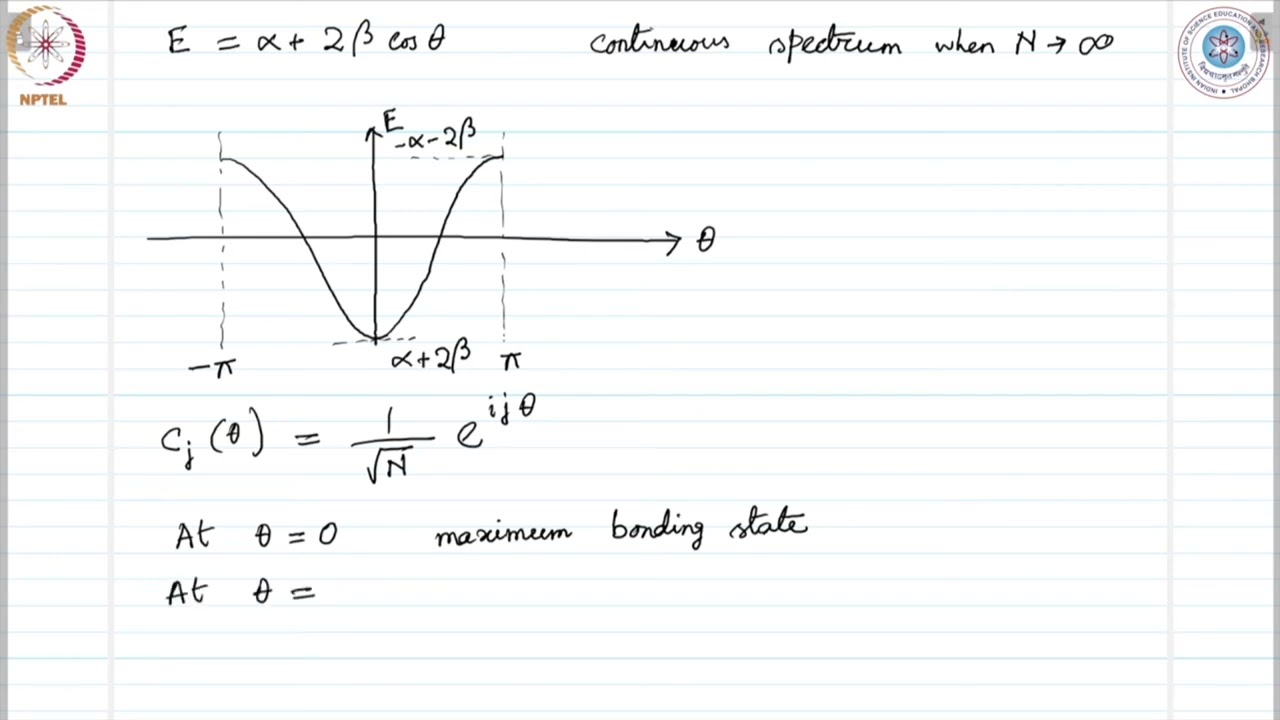 E = α + 2β cos θ continuous spectrum when N → ∞
NPTEL
E
-α-2β
θ
-π
α+2β
π
C_j (θ) = 1/√N e^{ijθ}
At θ = 0 maximum bonding state
At θ =